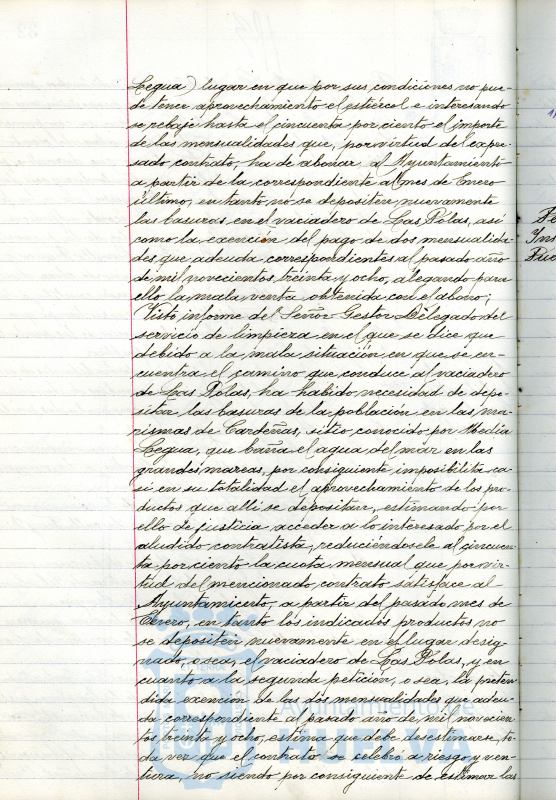 Legua) lugar en que por sus condiciones no pue-
de tener aprovechamiento el estiercol e interesando
se rebaje hasta el cincuenta por ciento el importe
de las mensualidades que, por virtud del expre-
sado contrato, ha de abonar al Ayuntamiento
a partir de la correspondiente al mes de Enero
último, en tanto no se depositen nuevamente
las basuras en el vaciadero de Las Polas, así
como la exención del pago de dos mensualida-
des que adeuda correspondientes al pasado año
de mil novecientos treinta y ocho, alegando para
ello la mala venta obtenida con el abono;
Visto informe del Señor Gestor Delegado del
servicio de limpieza en el que se dice que
debido a la mala situación en que se en-
cuentra el camino que conduce al vaciadero
de Las Polas, ha habido necesidad de depo-
sitar las basuras de la población en las ma-
rismas de Cardeñas, sitio conocido por Media
Legua, que baña el agua del mar en las
grandes mareas, por consiguiente imposibilita ca-
si en su totalidad el aprovechamiento de los pro-
ductos que allí se depositan, estimando por
ello de justicia acceder a lo interesado por el
aludido contratista, reduciéndosele al cincuen-
ta por ciento la cuota mensual que por vir-
tud del mencionado contrato satisface al
Ayuntamiento, a partir del pasado mes de
Enero, en tanto los indicados productos no
se depositen nuevamente en el lugar desig-
nado, o sea, el vaciadero de Las Polas, y en
cuanto a la segunda petición, o sea, la preten-
dida exención de las dos mensualidades que adeu-
da correspondiente al pasado año de mil novecien
tos treinta y ocho, estima que debe desestimarse, to-
da vez que el contrato se celebró a riesgo y ven-
tura, no siendo por consiguiente de estimar las
Ayuntamiento de
HUELVA